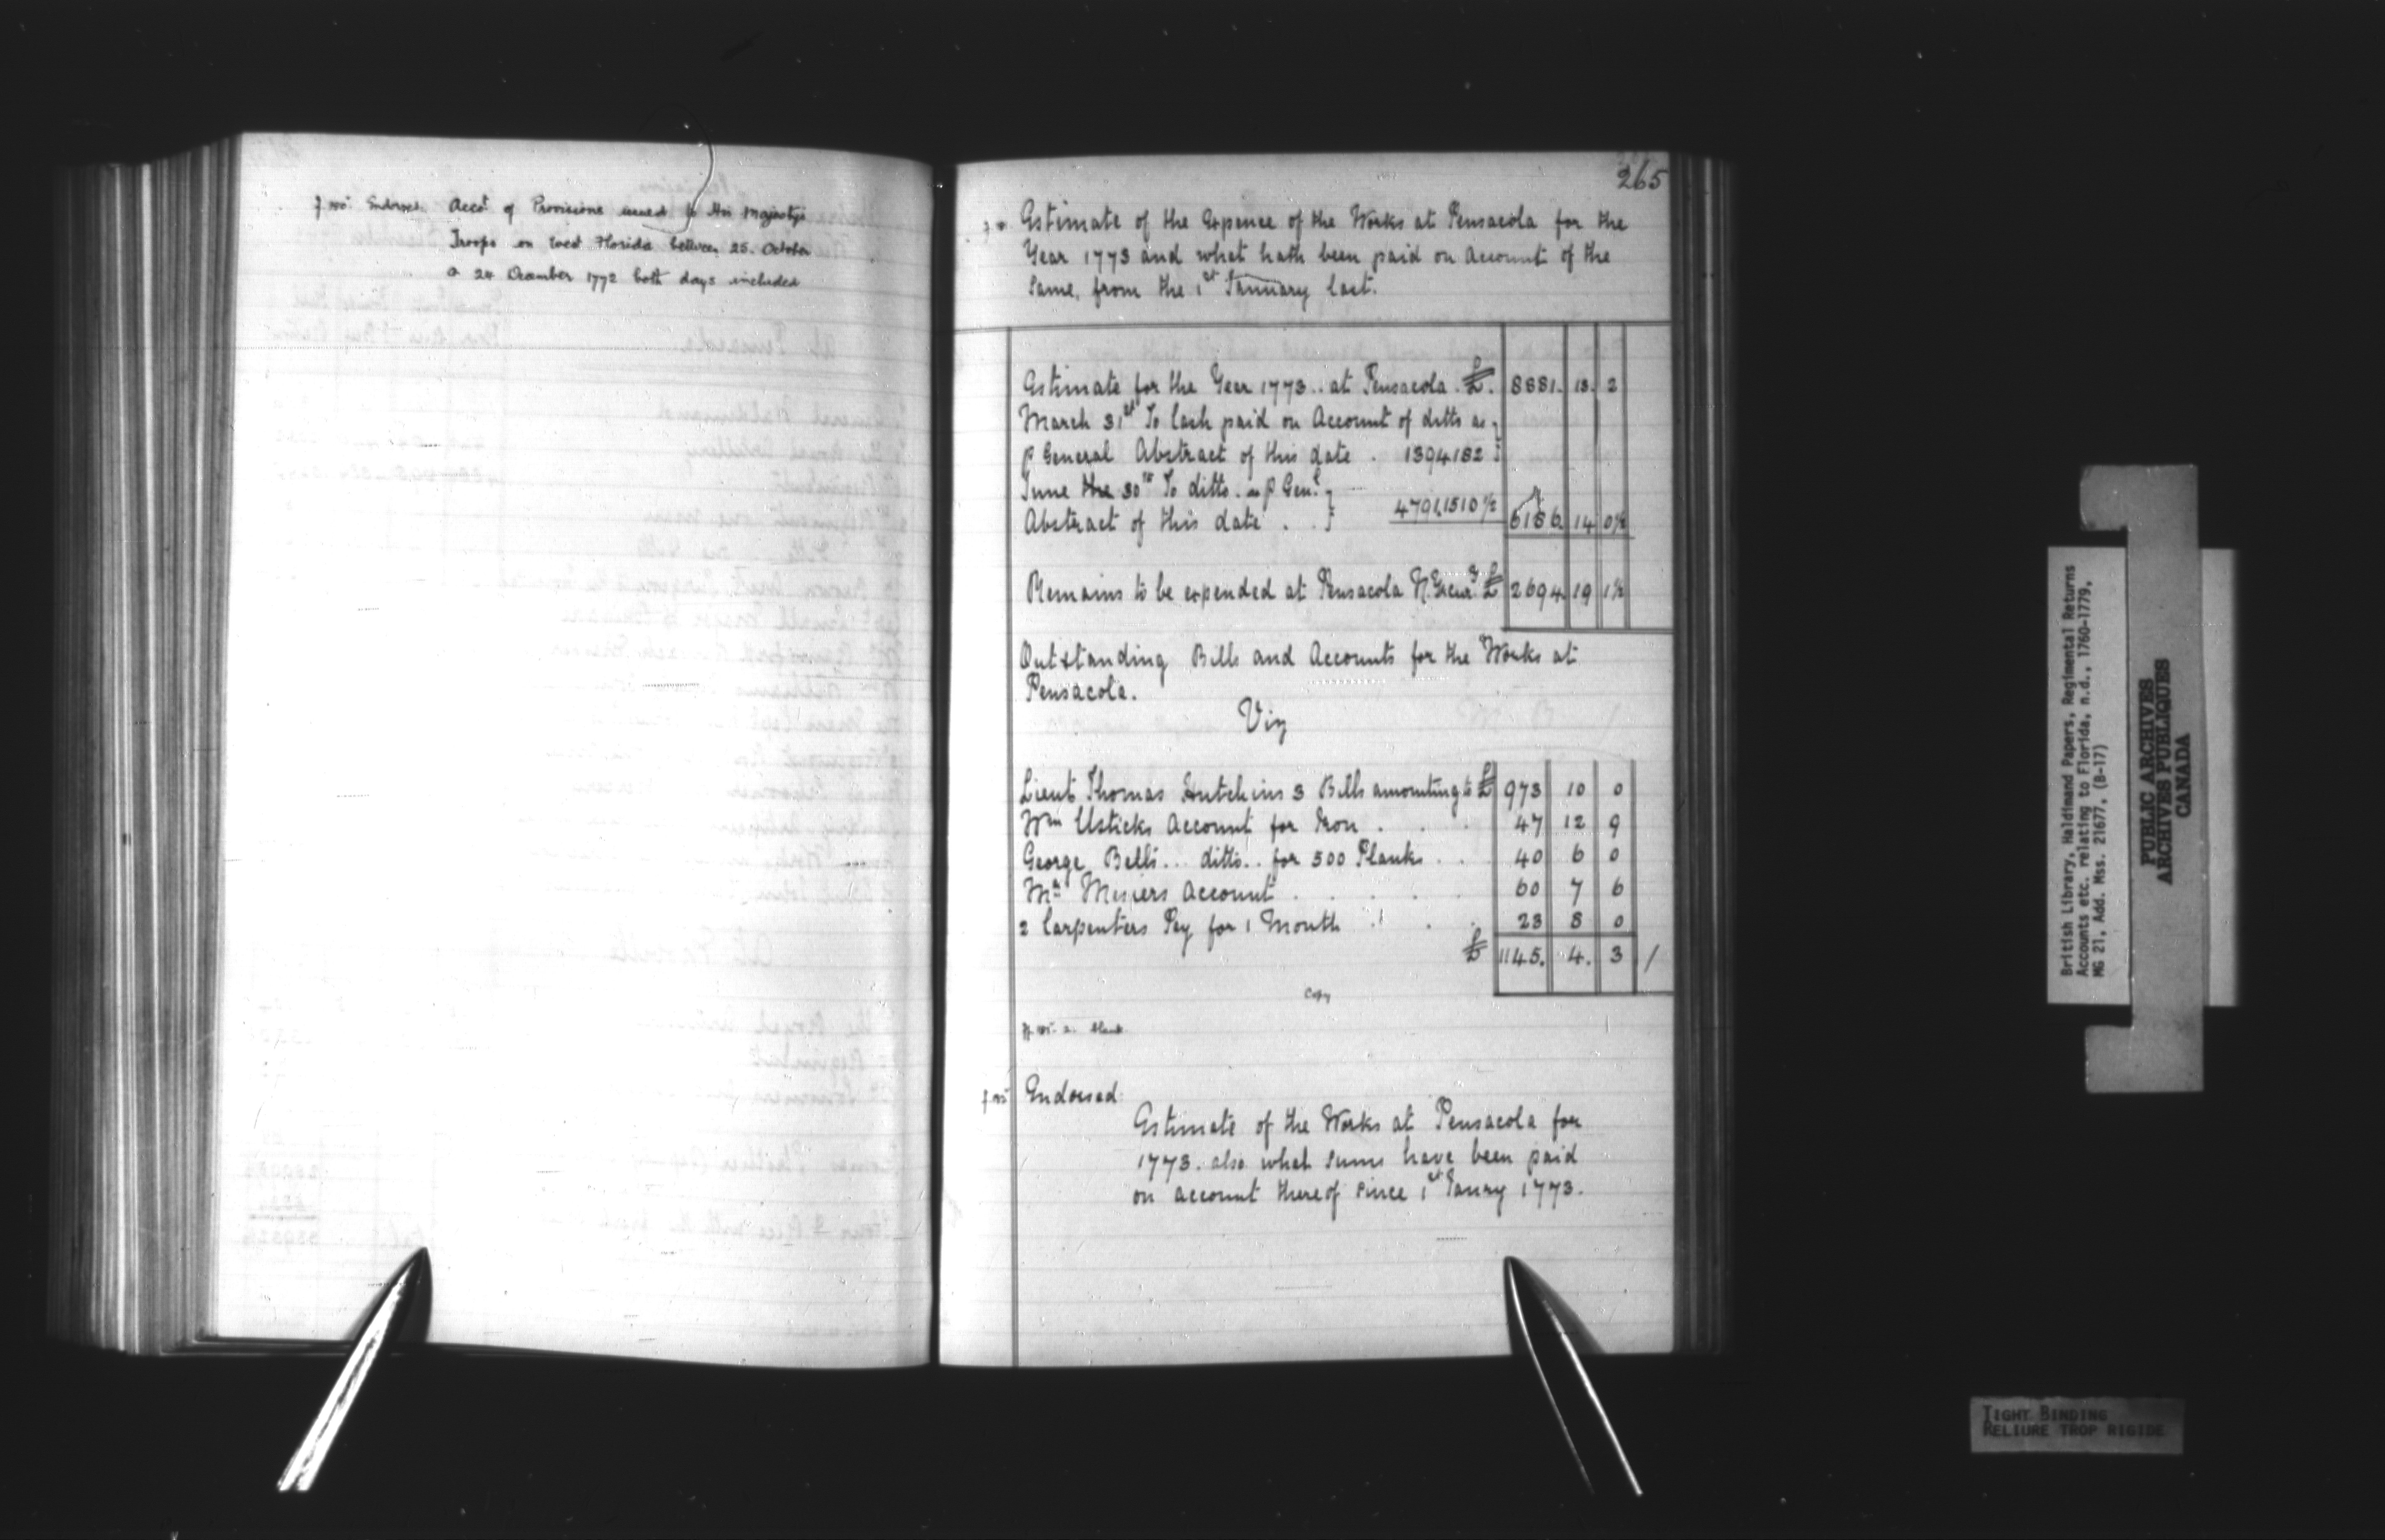 Endorsed Acct of Provisions issued to His Majestys
Troops in West Florida between 25. October
& 24 December 1772 both days included
265
Estimate of the Expence of the Works at Pensacola for the
Year 1773 and what hath been paid on Account of the
Same, from the 1st January last.
Estimate for the Year 1773.. at Pensacola . £. 8881. 13. 2
March 31st To Cash paid on Account of ditto as
P General Abstract of this date . 1394.18 2
June the 30th To ditto. as P Genl
Abstract of this date . . 4791.15 10 ½ 6186. 14 0½
Remains to be expended at Pensacola £ 2694. 19 1½
Outstanding Bills and Accounts for the Works at
Pensacola.
Viz
Lieut Thomas Hutchins 3 Bills amounting to £ 973 10 0
Wm Usticks Account for Iron . . . 47 12 9
George Bells... ditto.. for 500 Planks . . 40 6 0
Mr Account . . . . . 60 7 6
2 Carpenters Pay for 1 Month . . . 23 8 0
£ 1145. 4. 3 /
Copy
blank
Endorsed
Estimate of the Works at Pensacola for
1773. also what sums have been paid
on account thereof since 1st Janry 1773.
British Library, Haldimand Papers, Regimental Returns
Accounts etc. relating to Florida, n.d., 1760-1779,
MG 21, Add. Mss. 21677, (B-17)
PUBLIC ARCHIVES
ARCHIVES PUBLIQUES
CANADA
TIGHT BINDING
RELIURE TROP RIGIDE